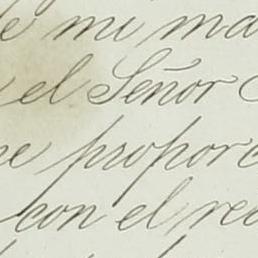 de mi ma
el Señor
me propor
con el re